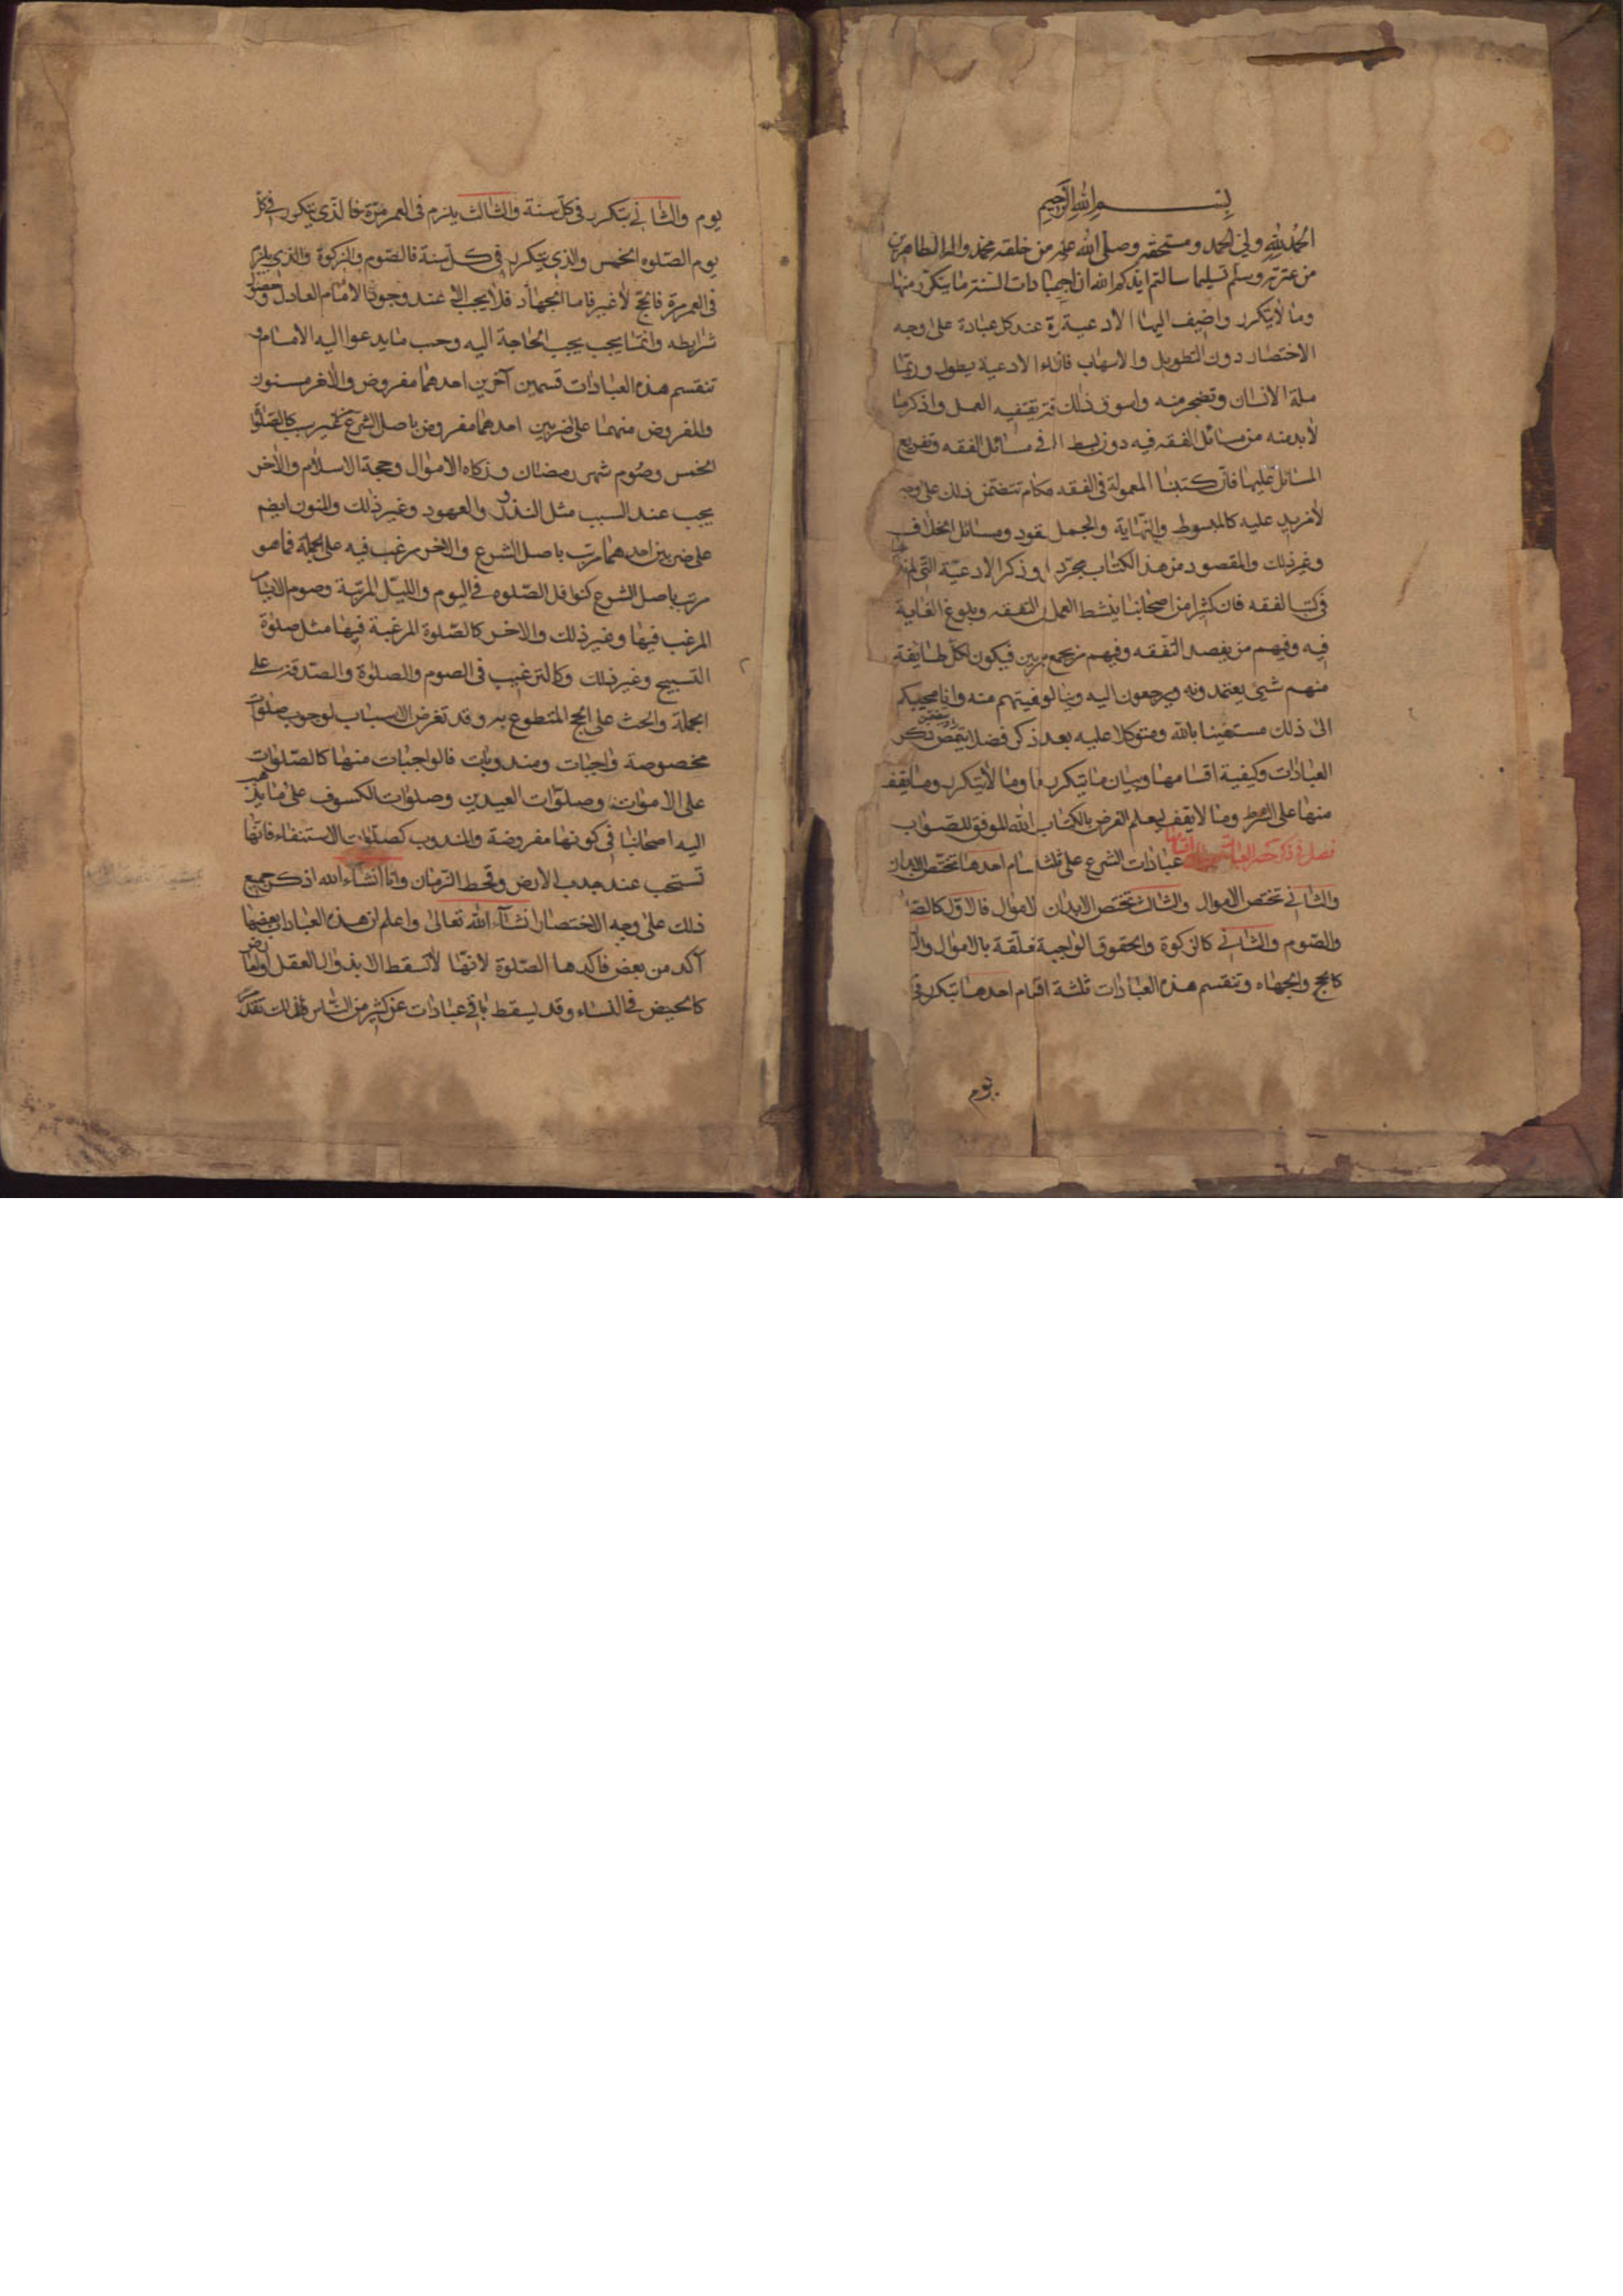 بسم الله الرحيم
الحمد لله ولي الحمد ومستحقه وصلى الله على من خلقه محمد واله الطاهرين
من عترته وسلم تسليما سالتم ايدكم الله ان اجمع عبادات السنة ما يتكرر منها
وما لا يتكرر واضيف اليها الادعية عند كل عبادة على وجه
الاختصار دون التطويل والاسهاب فان الادعية يطول وربما
مله الانسان وتضجر منه واسوق ذلك يقتضيه العمل واذكر ما
لا بد منه من مسائل الفقه فيه دون بسط في مسائل الفقه وتفريع
المسائل عليها فان كتبنا المعمولة في الفقه تتضمن ذلك على وجه
لا مزيد عليه كالمبسوط والنهاية والجمل عقود ومسائل الخلاف
وغير ذلك والمقصود من هذا الكتاب مجرد وذكر الادعية التي لم
في كتب الفقه فان كثيرا من اصحابنا ينشط العمل التفقه وبلوغ الغاية
فيه وفيهم من يقصد التفقه وفيهم من يجمع فيكون لكل طايفة
منهم شيئ يعتمدونه ويرجعون اليه وينالون بغيتهم منه وانا مجيبكم
الى ذلك مستعينا بالله ومتوكلا عليه بعد ذكر فصل يتضمن ذكر
العبادات وكيفية اقسامها وبيان ما يتكرر وما لا يتكرر وما يقف
منها على الشرط وما لا يقف ليعلم الغرض بالكتاب الله الموفق للصواب
فصل في ذكر حصر العبادات عبادات الشرع على ثلثة اقسام احدها تختص الابدان
والثاني تختص الاموال والثالث تختص الابدان الاموال فالاول كالصلوة
والصوم والثاني كالزكوة والحقوق الواجبة متعلقة بالاموال والثالث
كالحج والجهاد وتنقسم هذه العبادات ثلثة اقسام احدها يتكرر في
يوم
يوم والثاني يتكرر في كل سنة والثالث يلزم في العمر مرة فالذي يتكرر في كل
يوم الصلوه الخمس والذي يتكرر في كل سنة فالصوم والزكوة والذي يلزم
في العمر مرة فالحج لا غير فاما الجهاد فلا يجب الا عند وجود الامام العادل وحصول
شرايطه وانما يجب بحسب الحاجة اليه وحسب ما يدعوا اليه الامام و
تنقسم هذه العبادات قسمين آخرين احدهما مفروض والاخر مسنون
والمفروض منهما على ضربين احدهما مفروض باصل الشرع من غير سبب كالصلوات
الخمس وصوم شهر رمضان وزكاه الاموال وحجة الاسلام والاخر
يجب عند السبب مثل النذور والعهود وغير ذلك والنون ايضم
على ضربين احدهما مرتب باصل الشرع والاخر مرغب فيه على الجملة فما هو
مرتب باصل الشرع كنوافل الصلوه في اليوم والليل المرتبة وصوم الايام
المرغب فيها وغير ذلك والاخر كالصلوة المرغبة فيها مثل صلوة
التسبيح وغير ذلك وكالترغيب في الصوم والصلوة والصدقة على
الجملة والحث على الحج المتطوع به وقد تعرض الاسباب لوجوب صلوات
مخصوصة واجبات ومندوبات فالواجبات منها كالصلوات
على الاموات وصلوات العيدين وصلوات الكسوف على ما يذهب
اليه اصحابنا في كونها مفروضة والمندوب كصلوات الاستسقاء فانها
تستحب عند جدب الارض وقحط الزمان وانا انشاء الله اذكر جميع
ذلك على وجه الاختصار انشاء الله تعالى واعلم ان هذه العبادات بعضها
آكد من بعض فاكدها الصلوة لانها لا تسقط الا بزوال العقل او لعارض
كالحيض في النساء وقد يسقط باقي عبادات عن كثير من الناس فلذلك تقدم